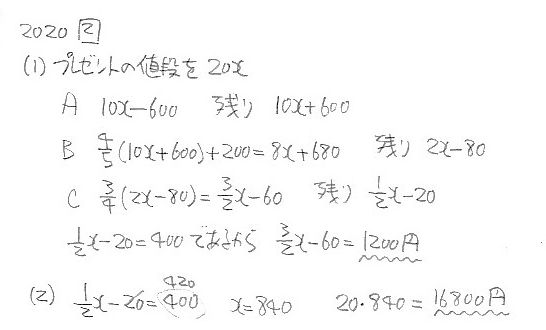 2020 [2]
(1) プレゼントの値段を 20x
A 10x-600 残り 10x+600
B 4/5(10x+600)+200=8x+680 残り 2x-80
C 3/4(2x-80)=3/2x-60 残り 1/2x-20
1/2x-20=400であるから 3/2x-60=1200円
(2) 1/2x-20=400 420 x=840 20・840=16800円